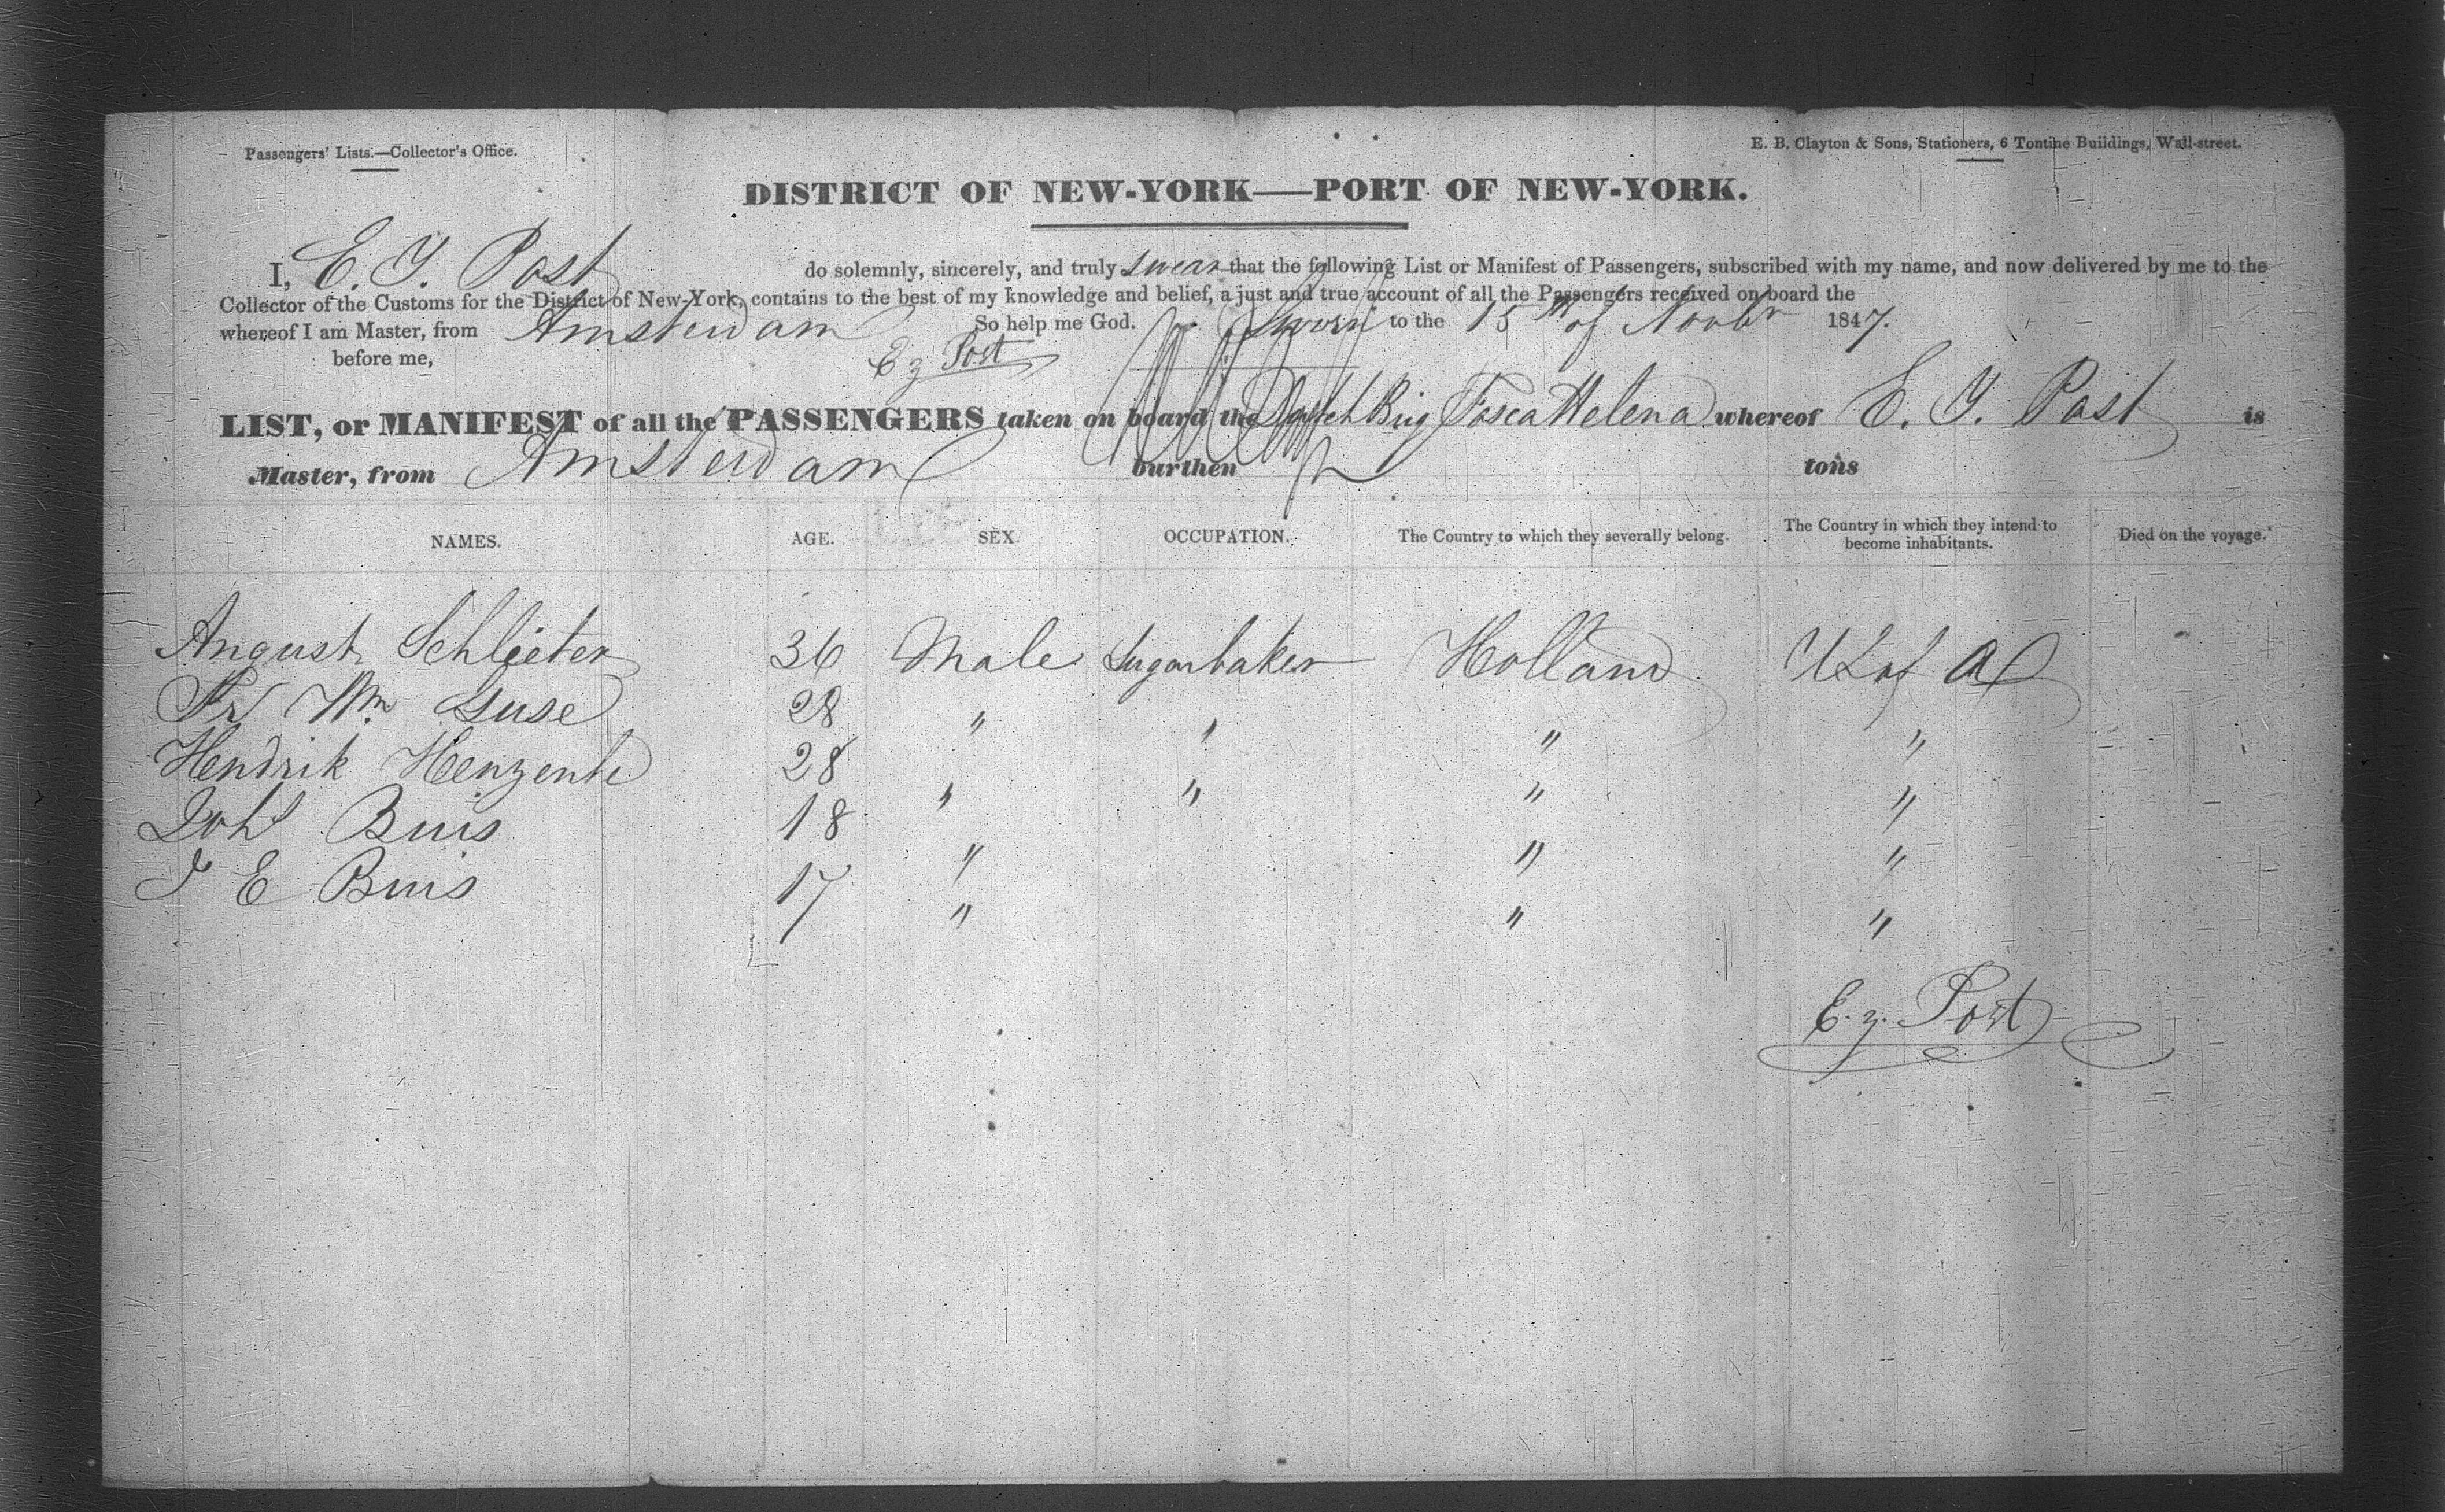 Passengers' Lists.—Collector's Office.
E. B. Clayton & Sons, Stationers, 6 Tontine Buildings, Wall-street.
DISTRICT OF NEW-YORK——PORT OF NEW-YORK.
I, E. J. Post do solemnly, sincerely, and truly swear that the following List or Manifest of Passengers, subscribed with my name, and now delivered by me to the
Collector of the Customs for the District of New-York, contains to the best of my knowledge and belief, a just and true account of all the Passengers received on board the
whereof I am Master, from Amsterdam So help me God. Sworn to the 15th of Novbr 1847.
before me, E z Post
LIST, or MANIFEST of all the PASSENGERS taken on board the Dutch Brig Tosca Helena whereof E. J. Post is
Master, from Amsterdam burthen tons
NAMES. AGE. SEX. OCCUPATION. The Country to which they severally belong. The Country in which they intend to become inhabitants. Died on the voyage.
August Schlieter 36 Male Sugarbaker Holland US of A
Fr Wm Luse 28 " " " "
Hendrik Henzenke 28 " " " "
Joh Buis 18 " " "
J E Buis 17 " " "
E. z. Post